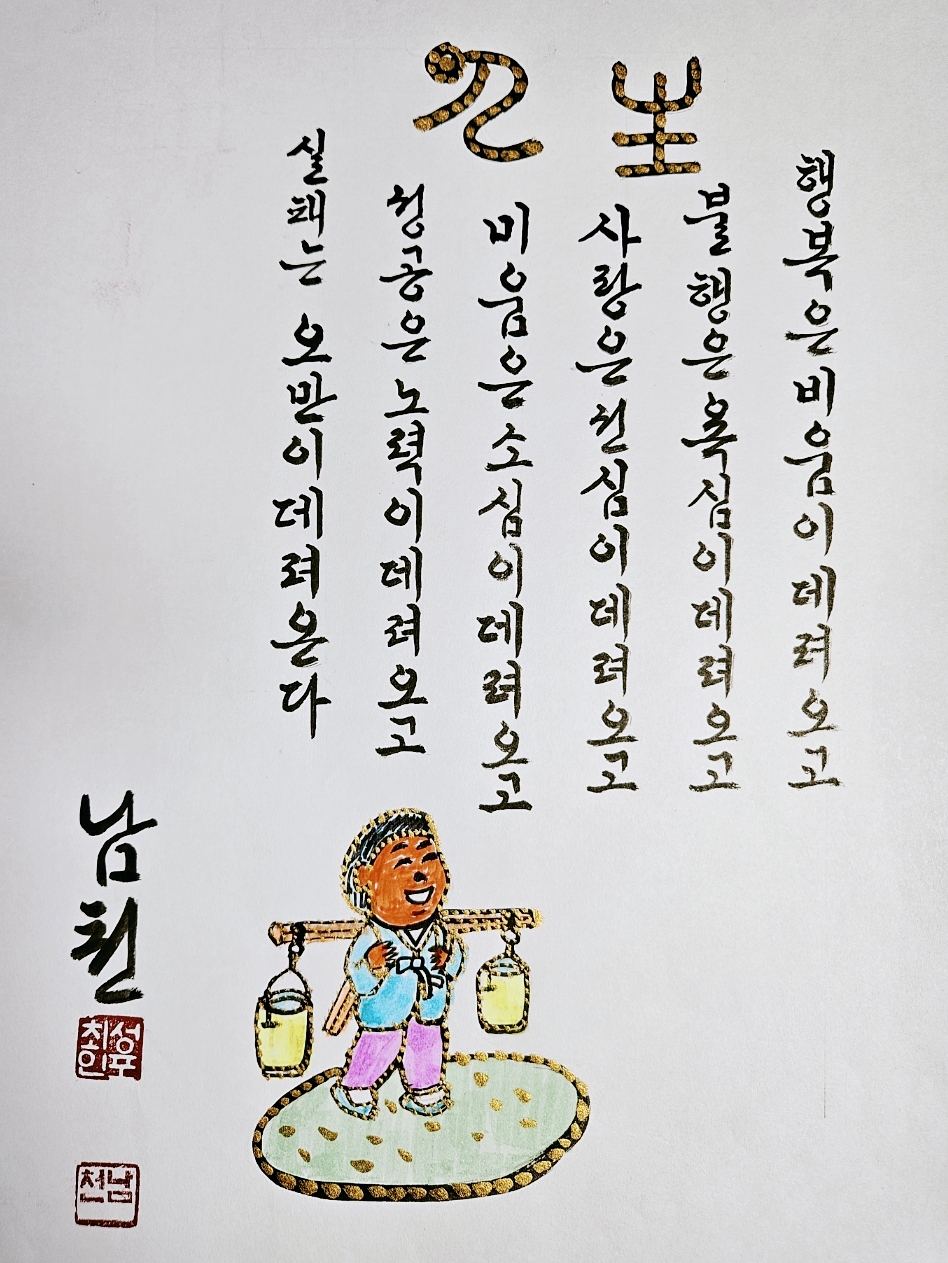 人生
행복은비움이데려오고
불행은욕심이데려오고
사랑은선심이데려오고
비움은소심이데려오고
성공은노력이데려오고
실패는 오만이데려온다
남천
남천